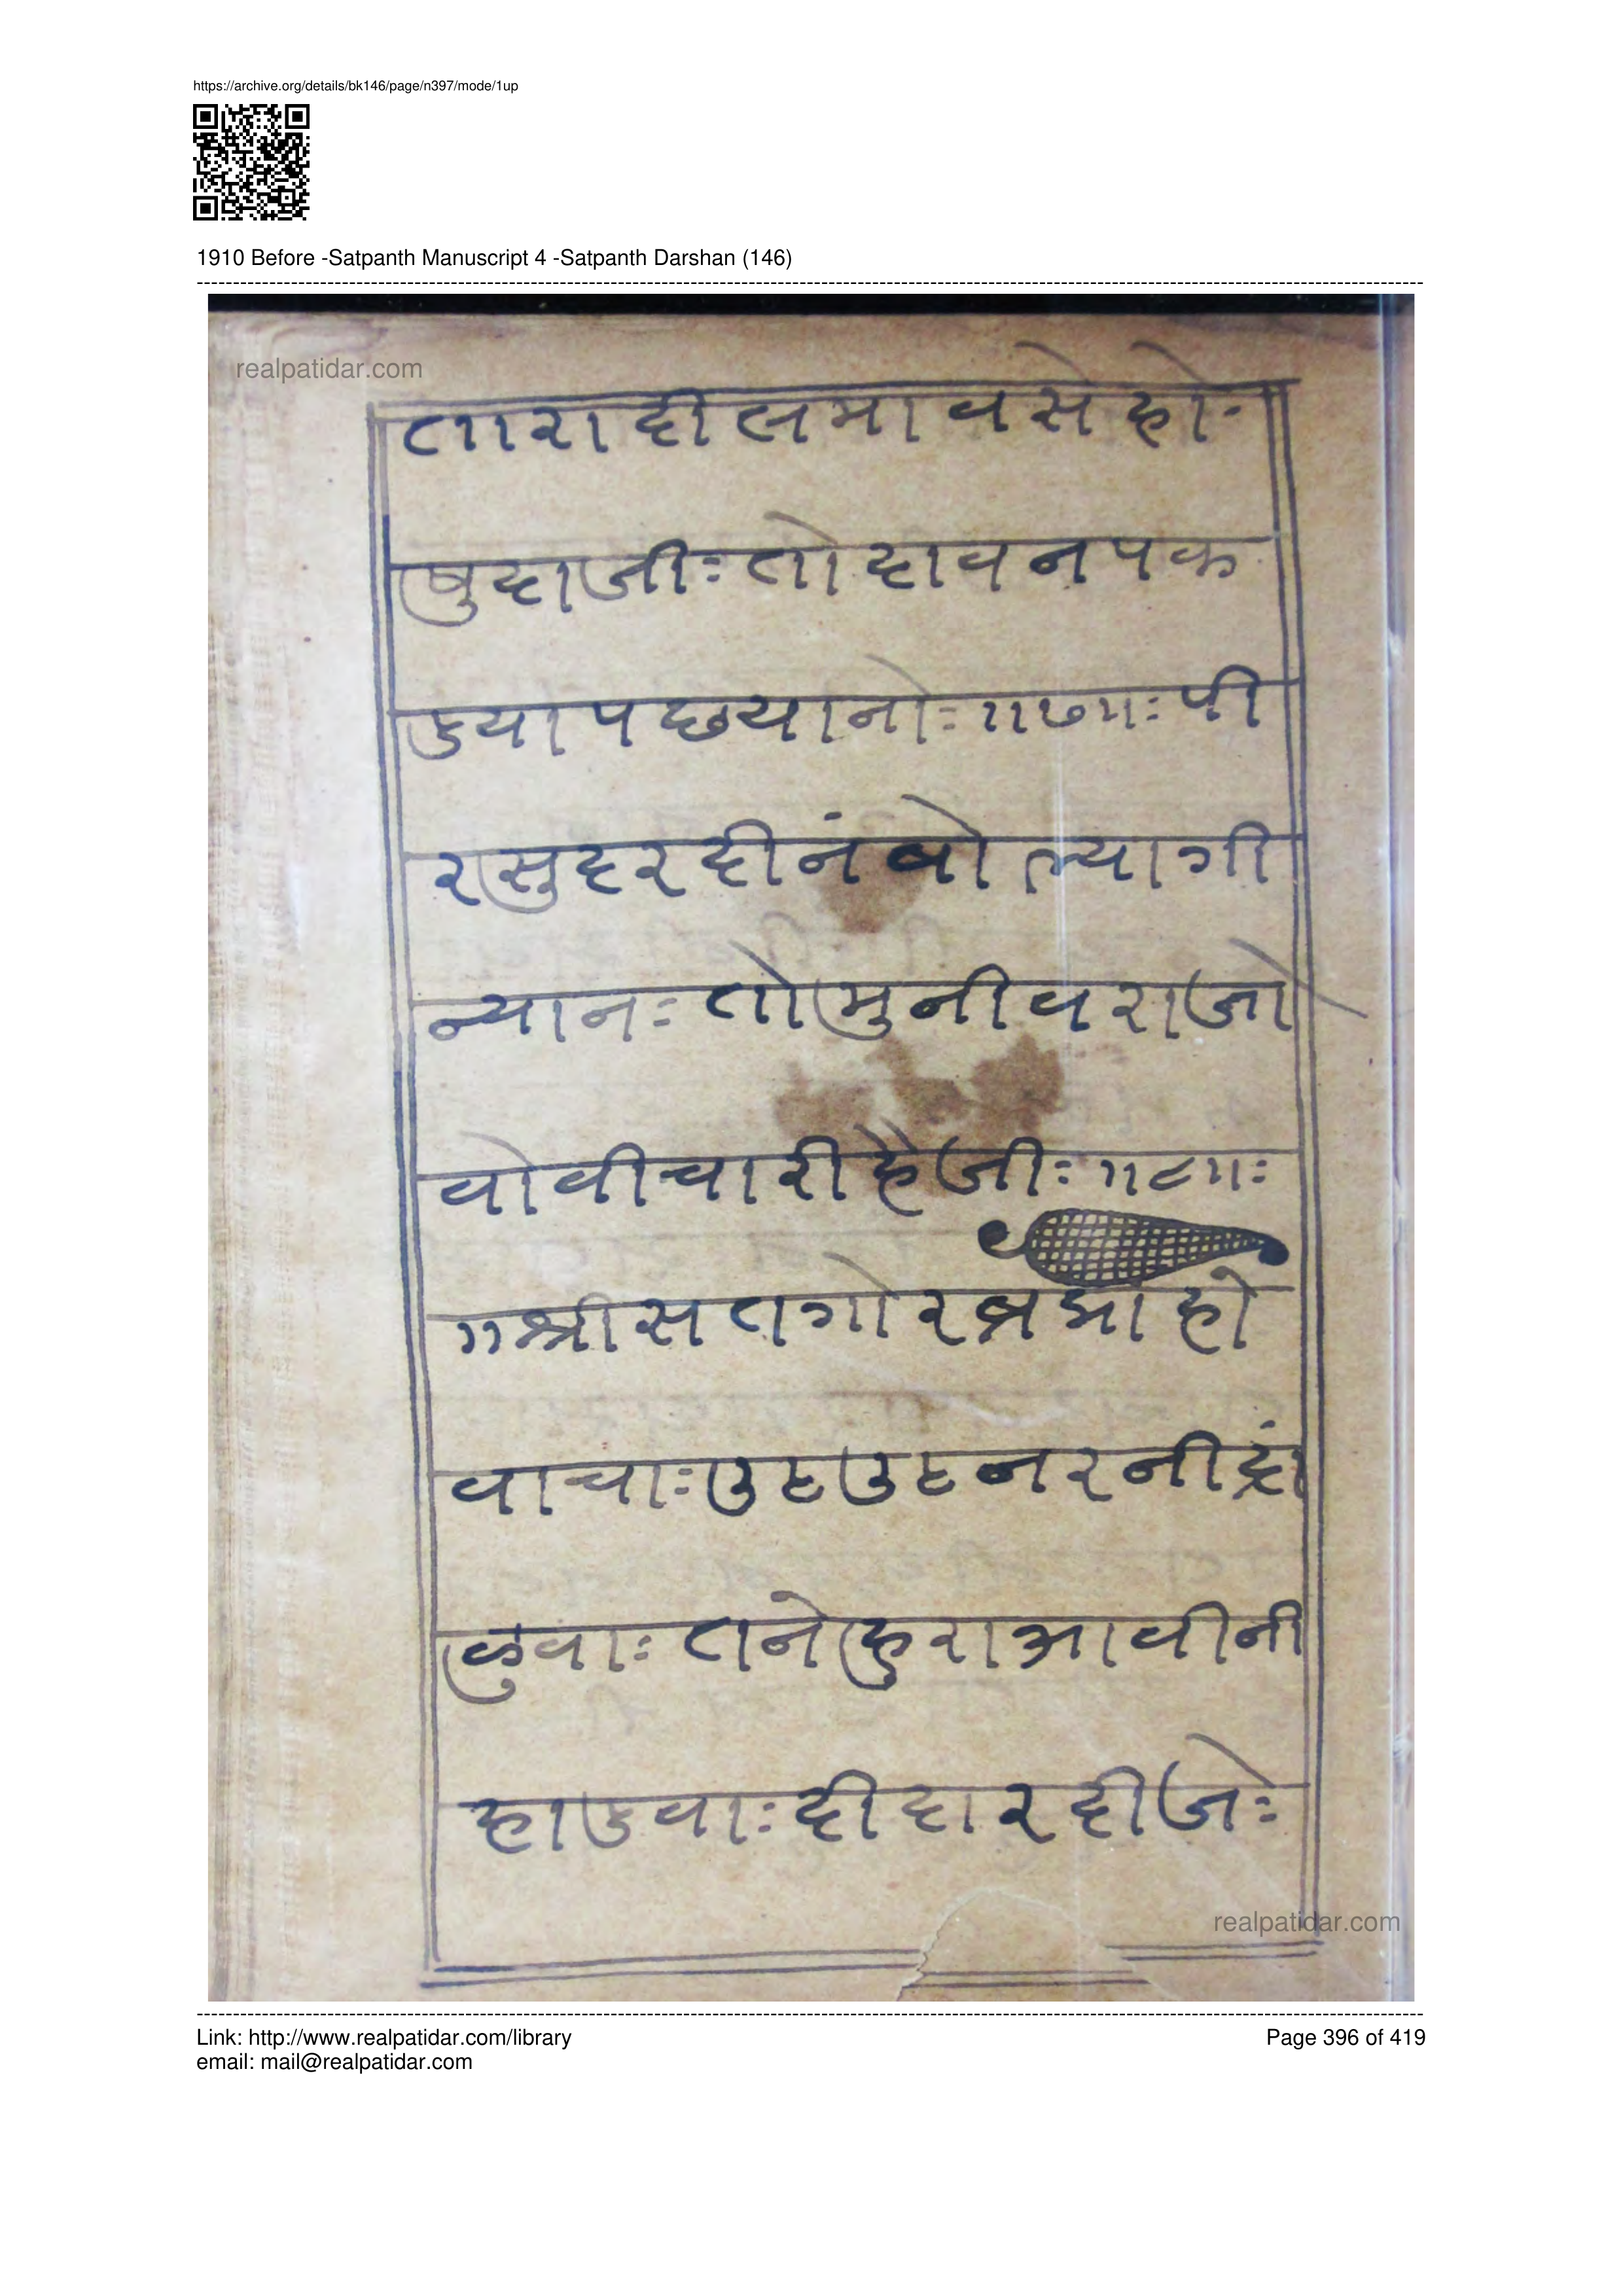 https://archive.org/details/bk146/page/n397/mode/1up
1910 Before -Satpanth Manuscript 4 -Satpanth Darshan (146)
realpatidar.com
तारादीलमावसेहो॰
षुदाजीः तोदावनपक
डयापछयानोः ॥७॥ः पी
रसुदरदीनंबोल्यागी
न्यानः तोमुनीवराजो
वोवीचारीहैजीः ॥८॥ः
॥श्रीसतगोरब्रमाहो
वाचाः उठउठनरनींद्रा
लुवाः तनेहुराआवीनी
हाडवाः दीदारदीजेः
realpatidar.com
Link: http://www.realpatidar.com/library
Page 396 of 419
email: mail@realpatidar.com